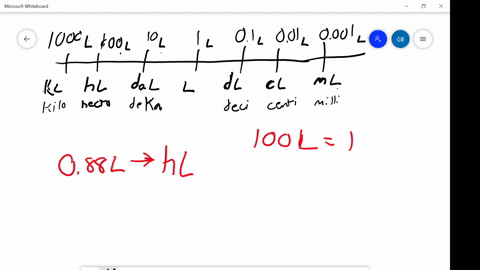 Microsoft Whiteboard
GB
1000L 100L 10L 1L 0.1L 0.01L 0.001L
KL hL daL L dL cL mL
Kilo hecto deKa deci centi milli
100L = 1
0.88L → hL